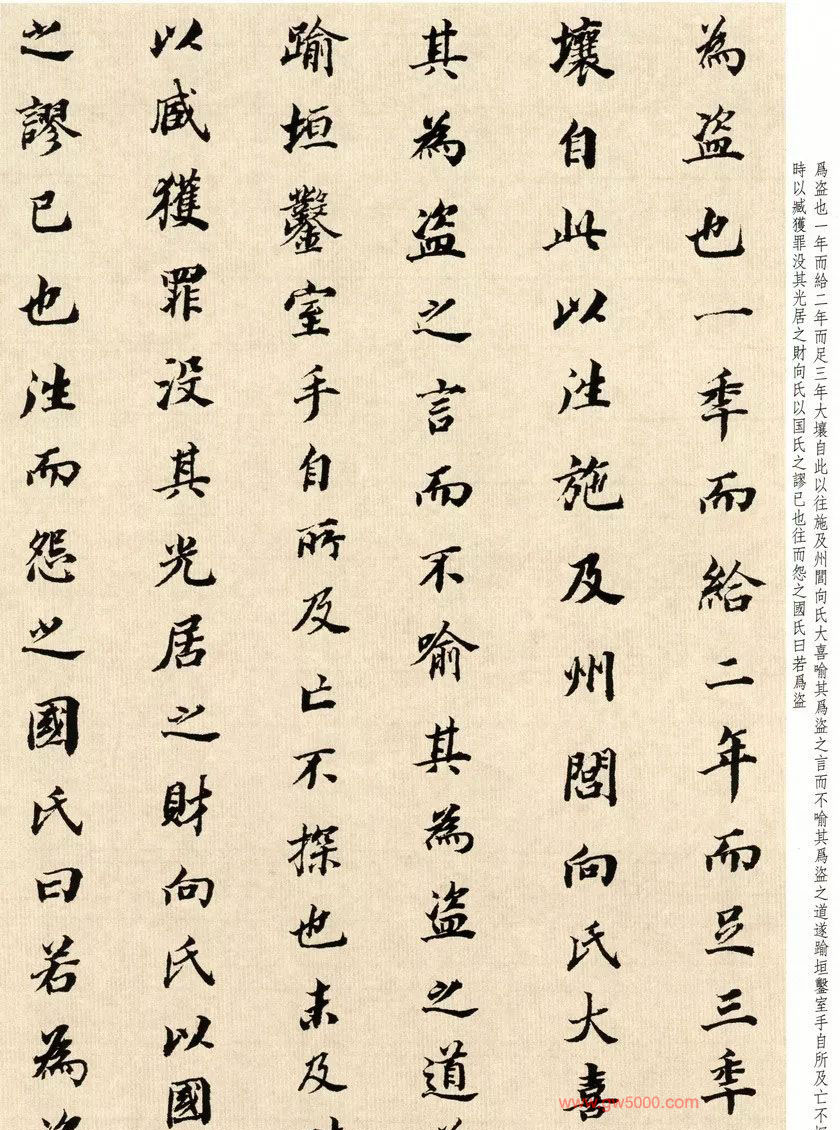 爲盜也一年而給二年而足三年大壤自此以往施及州閭向氏大喜喻其爲盜之言而不喻其爲盜之道遂踰垣鑿室手自所及亡不
時以臧獲罪没其光居之財向氏以国氏之謬已也往而怨之國氏曰若爲盜
為盜也一年而給二年而足三年
壤自此以往施及州閭向氏大喜
其為盜之言而不喻其為盜之道
踰垣鑿室手自所及亡不探也未及
以臧獲罪没其光居之財向氏以國
之謬已也往而怨之國氏曰若為
www.gw5000.com